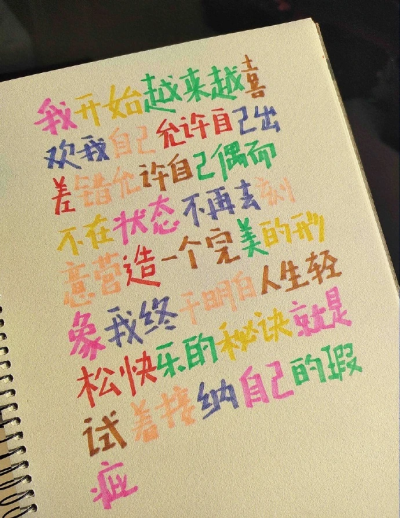 我开始越来越喜
欢我自己允许自己出
差错允许自己偶而
不在状态不再去刻
意营造一个完美的形
象我终于明白人生轻
松快乐的秘诀就是
试着接纳自己的瑕
疵